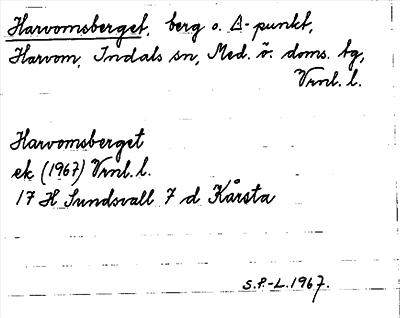 Harvomsberget, berg o. Δ-punkt,
Harvom, Indals sn, Med. ö. doms. tg,
Vrnl. l.
Harvomsberget
ek (1967) Vrnl. l.
17 H Sundsvall 7 d Kårsta
S.P.-L. 1967.